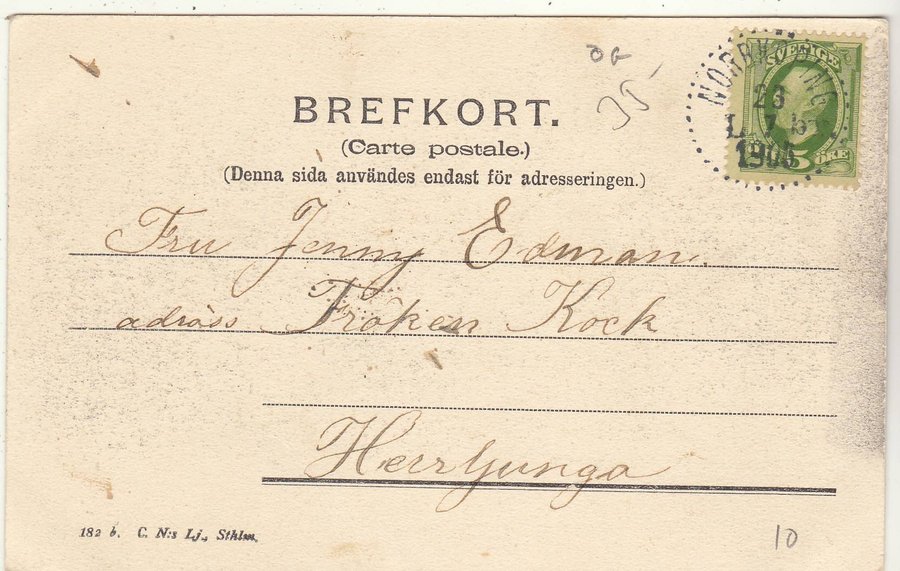 ÖG
35-
SVERIGE
NORRKÖPING
23
7
1903
5 ÖRE
BREFKORT.
(Carte postale.)
(Denna sida användes endast för adresseringen.)
Fru Jenny Edman.
adräss Fröken Kock
Herrljunga
182 b. C. N:s Lj., Sthlm.
10